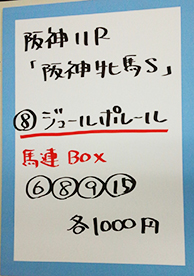 阪神11R
「阪神牝馬S」
⑧ジュールポレール
馬連 BOX
⑥⑧⑨⑮
各1000円